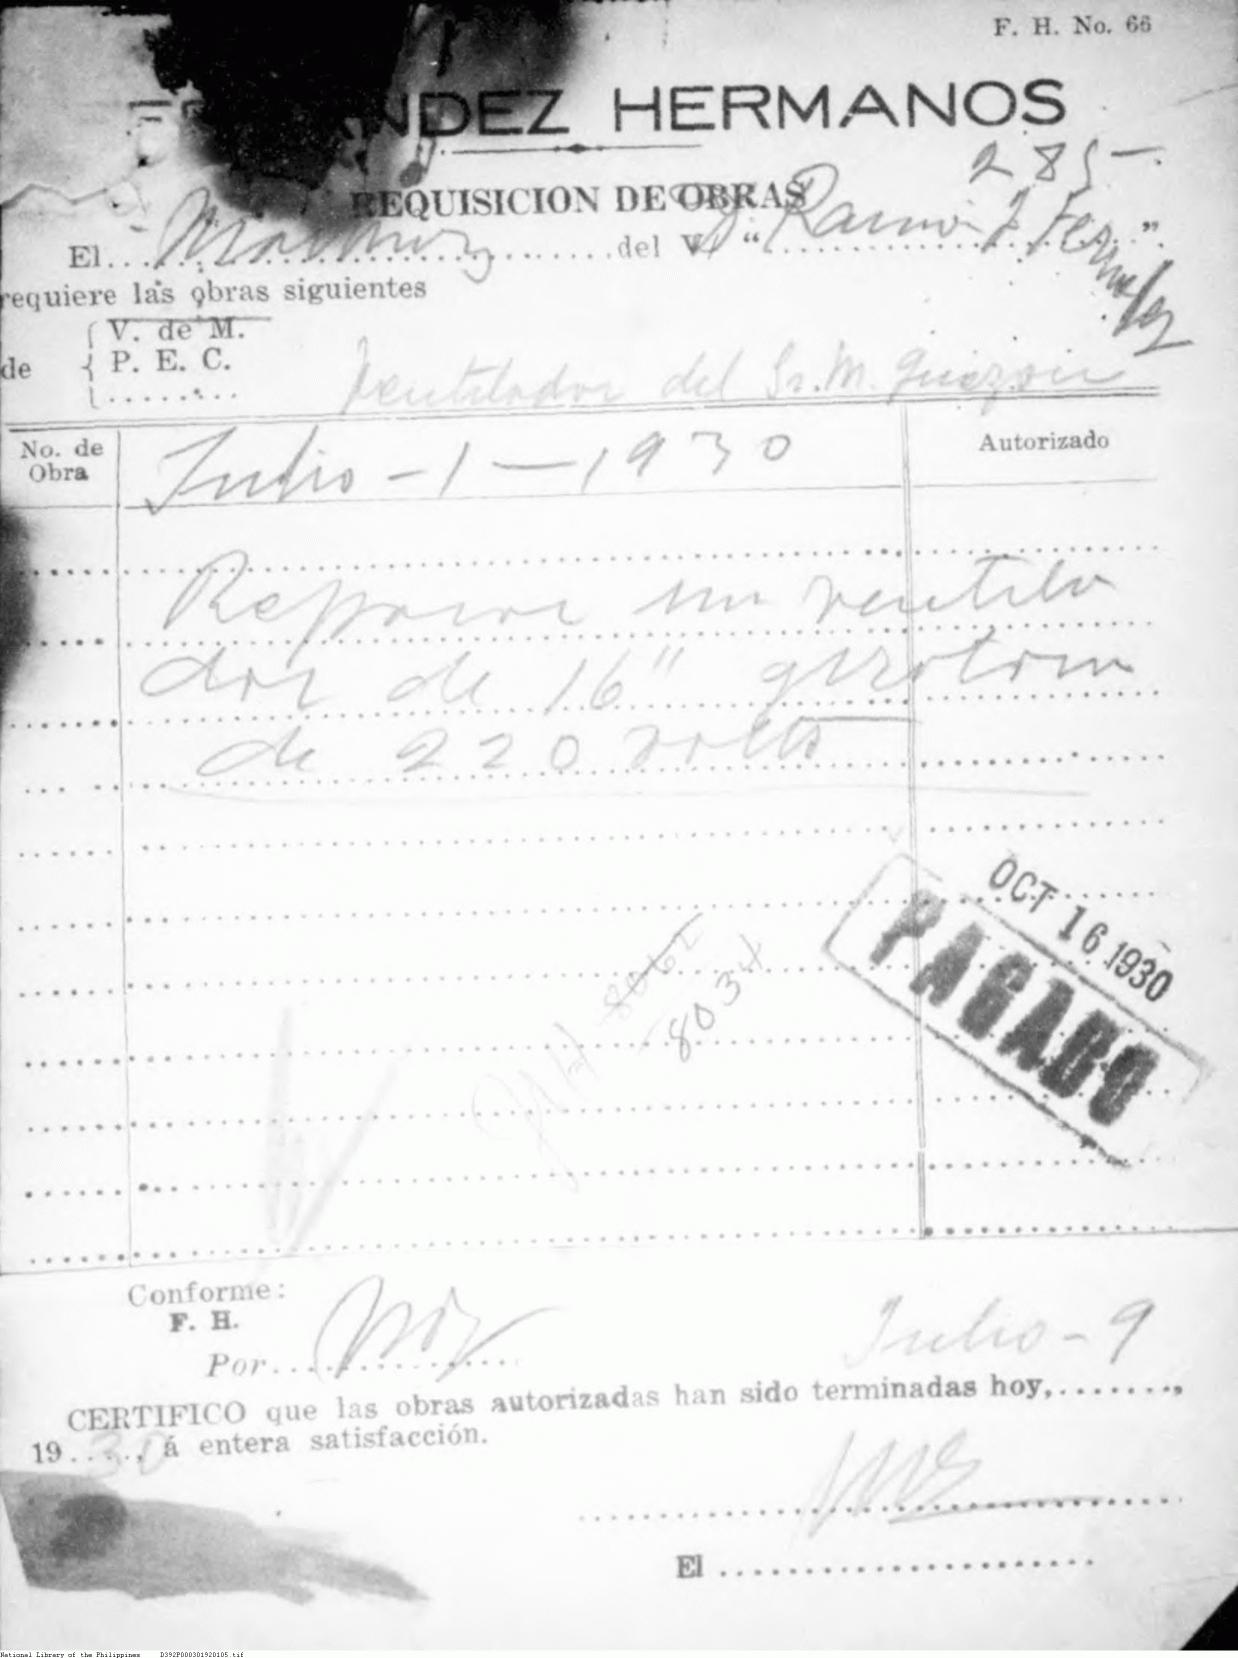 F. H. No. 66
NDEZ HERMANOS
285-
REQUISICION DE OBRAS
El .................... del V/ "J. Ramon J. Fernandez"
requiere las obras siguientes
V. de M.
de P. E. C.
Ventilador del Sr. M.
No. de Obra
Julio - 1 - 1930
Autorizado
Reparar un ventila
dor de 16"
de 220 volts
OCT 16 1930
PAGADO
8062
8034
Conforme:
F. H.
Por
Julio - 9
CERTIFICO que las obras autorizadas han sido terminadas hoy, ........,
1930, á entera satisfacción.
El ........................
National Library of the Philippines D392P000301920105.tif